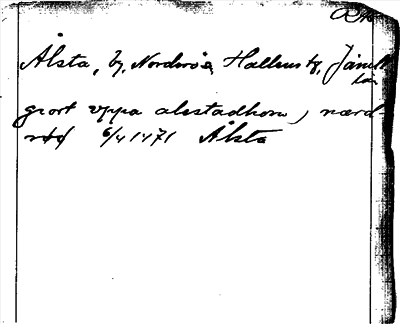 Ålsta, by, Norderö s, Hallens tg, Jämtl
län
giort vppa alastadhom, nærd-
6/4 1471 Ålsta